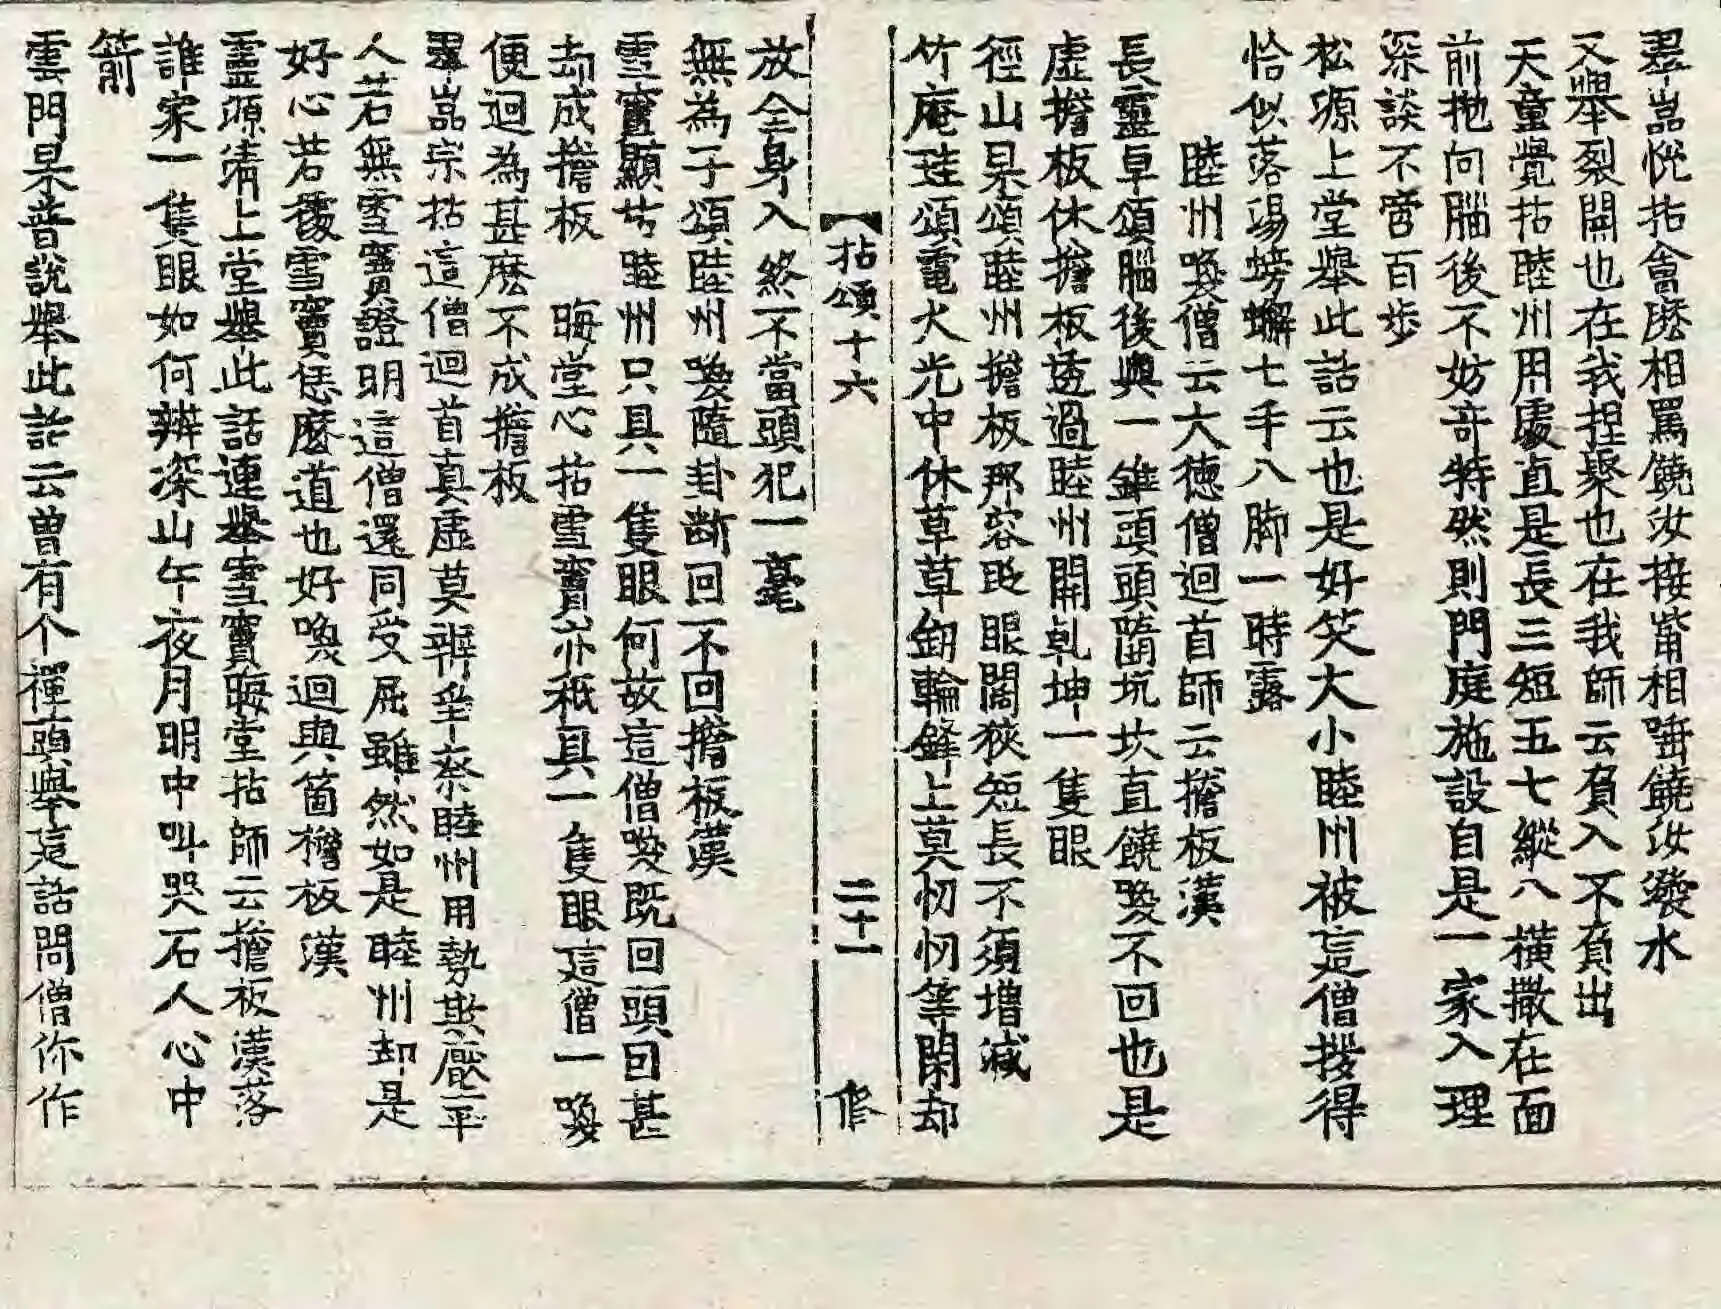 翠嵓恱拈會麽相罵饒汝接觜相唾饒汝潑水
又擧裂開也在我捏聚也在我師云負入不負出
天童覺拈睦州用處直是長三短五七縱八橫撒在面
前抛向腦後不妨竒特然則門庭施設自是一家入理
深談不啻百步
松源上堂擧此話云也是好笑大小睦州被這僧拶得
恰似落湯螃蠏七手八脚一時露
睦州喚僧云大德僧迴首師云擔板漢
長靈卓頌腦後與一錐頭頭墮坑坎直饒喚不回也是
虛擔板休擔板透過睦州開乹坤一隻眼
徑山杲頌睦州擔板那容眨眼闊狹短長不須增減
竹庵珪頌電火光中休草草劒輪鋒上莫忉忉等閑却
【拈頌十六 二十一 修
放全身入終不當頭犯一毫
無為子頌睦州喚隨卦斷回不回擔板漢
雪竇顯拈睦州只具一隻眼何故這僧喚旣回頭因甚
却成擔板 晦堂心拈雪竇亦秖具一隻眼這僧一喚
便迴為甚麽不成擔板
翠嵓宗拈這僧迴首真虛莫辨垂察睦州用勢欺壓平
人若無雪竇證明這僧還同受屈雖然如是睦州却是
好心若據雪竇恁麽道也好喚迴與箇擔板漢
靈源淸上堂擧此話連擧雪竇晦堂拈師云擔板漢落
誰家一隻眼如何辨深山午夜月明中叫哭石人心中
箭
雲門杲普說擧此話云曾有个禪頭擧這話問僧你作